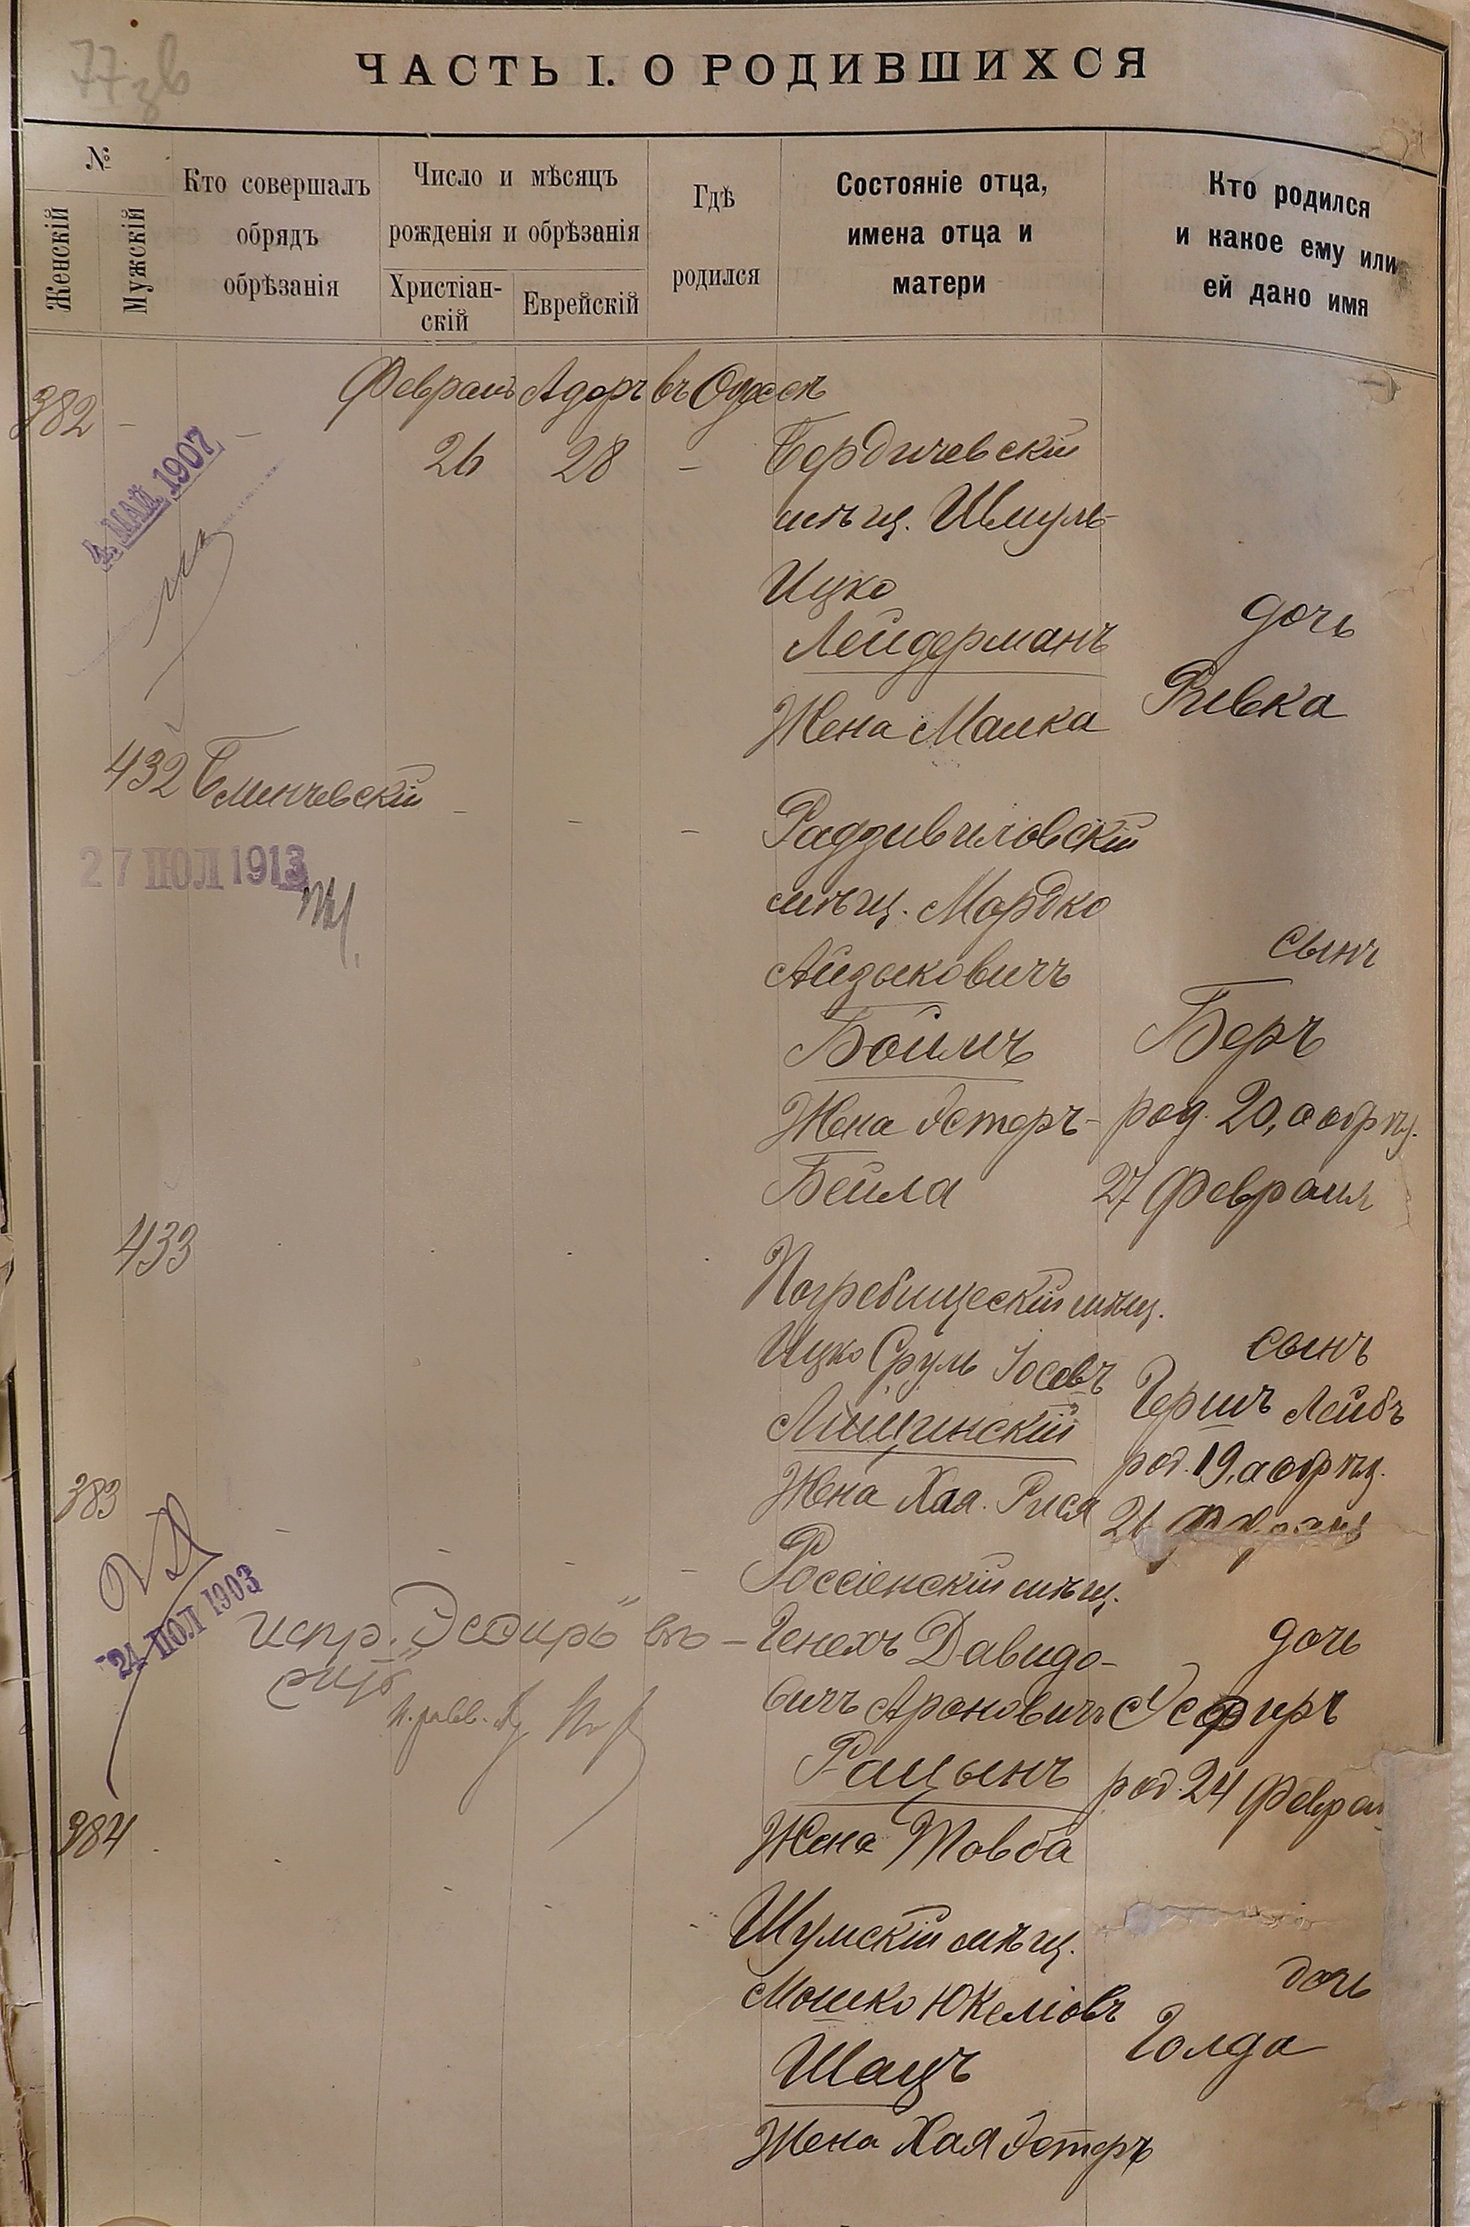 77 зв
ЧАСТЬ I. О РОДИВШИХСЯ
№
Женскій
Мужскій
Кто совершалъ
обрядъ
обрѣзанія
Число и мѣсяцъ
рожденія и обрѣзанія
Христіан-
скій
Еврейскій
Гдѣ
родился
Состояніе отца,
имена отца и
матери
Кто родился
и какое ему или
ей дано имя
Февраль Адаръ въ Одессѣ
382 - -
26 28 - Бердичевскій
4 МАЙ 1907
мѣщ. Шмуль-
Ицко
Лейдерманъ
дочь
Жена Малка
Ривка
432 Блинчевскій - - -
Радзивиловскій
27 ІЮЛ 1913
мѣщ. Мордко
Айзыковичъ
сынъ
Боймъ
Беръ
Жена Эстеръ-
род. 20, а обрѣз.
Бейла
27 Февраля
433
Погребищескій мѣщ.
Ицко Сруль Іосевъ
сынъ
Лищинскій
Гершъ Лейбъ
род. 19, а обрѣз.
Жена Хая-Рися
26 Февраля
383 - - - -
Россіенскій мѣщ.
24 ІЮЛ 1903
испр. "Эсѳирь" вѣ-
рить
Генехъ Давидо-
дочь
вичъ Ароновичъ
Эсфирь
Рацынъ
род. 24 Февраля
384
Жена Товба
Шумскій мѣщ.
Мошко Юкеліовъ
дочь
Шацъ
Голда
Жена Хая Эстеръ